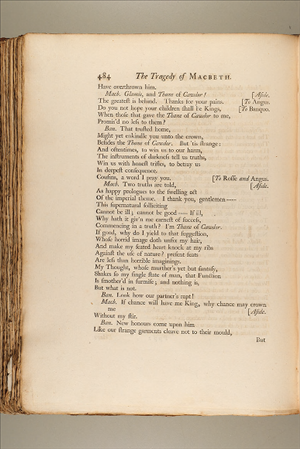 484 The Tragedy of MACBETH.
Have overthrown him.
Mach. Glamis, and Thane of Cawdor! [Aside.
The greatest is behind. Thanks for your pains. [To Angus.
Do you not hope your children shall be Kings, [To Banquo.
When those that gave the Thane of Cawdor to me,
Promis'd no less to them?
Ban. That trusted home,
Might yet enkindle you unto the crown,
Besides the Thane of Cawdor. But 'tis strange:
And oftentimes, to win us to our harm,
The instruments of darkness tell us truths,
Win us with honest trifles, to betray us
In deepest consequence.
Cousins, a word I pray you. [To Rosse and Angus.
Mach. Two truths are told, [Aside.
As happy prologues to the swelling act
Of the imperial theme. I thank you, gentlemen —
This supernatural solliciting
Cannot be ill; cannot be good — If ill,
Why hath it giv'n me earnest of success,
Commencing in a truth? I'm Thane of Cawdor.
If good, why do I yield to that suggestion,
Whose horrid image doth unfix my hair,
And make my seated heart knock at my ribs
Against the use of nature? present fears
Are less than horrible imaginings.
My Thought, whose murther's yet but fantasy,
Shakes so my single state of man, that Function
Is smother'd in surmise; and nothing is,
But what is not.
Ban. Look how our partner's rapt!
Macb. If chance will have me King, why chance may crown
me [Aside.
Without my stir.
Ban. New honours come upon him
Like our strange garments cleave not to their mould,
But